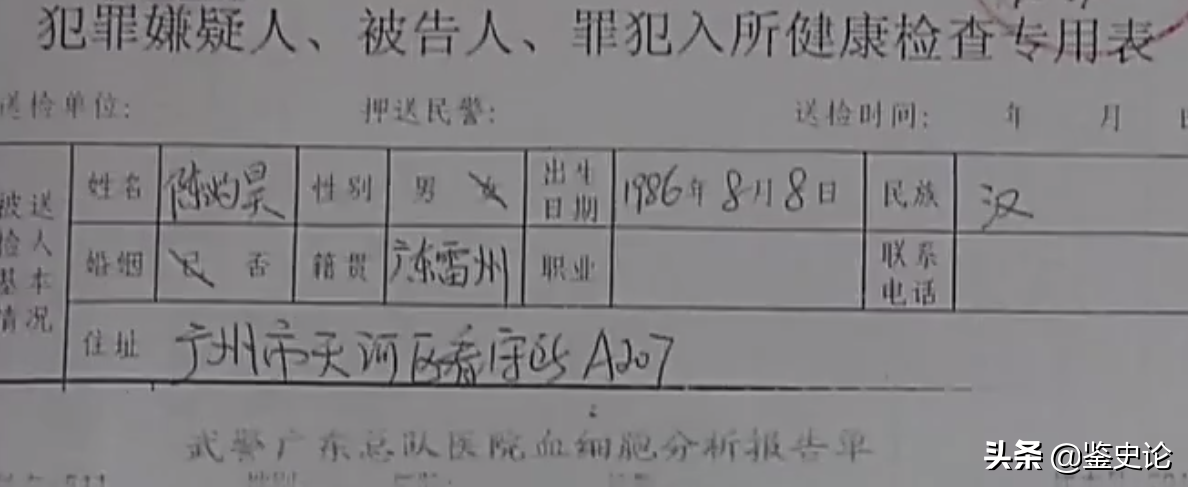 犯罪嫌疑人、被告人、罪犯入所健康检查专用表
送检单位: 押送民警: 送检时间: 年 月
被送检人基本情况
姓名 陈灼昊 性别 男 女 出生日期 1986年8月8日 民族 汉
婚姻 已 否 籍贯 广东雷州 职业 联系电话
住址 广州市天河区看守所A207
武警广东总队医院血细胞分析报告单
头条 @鉴史论